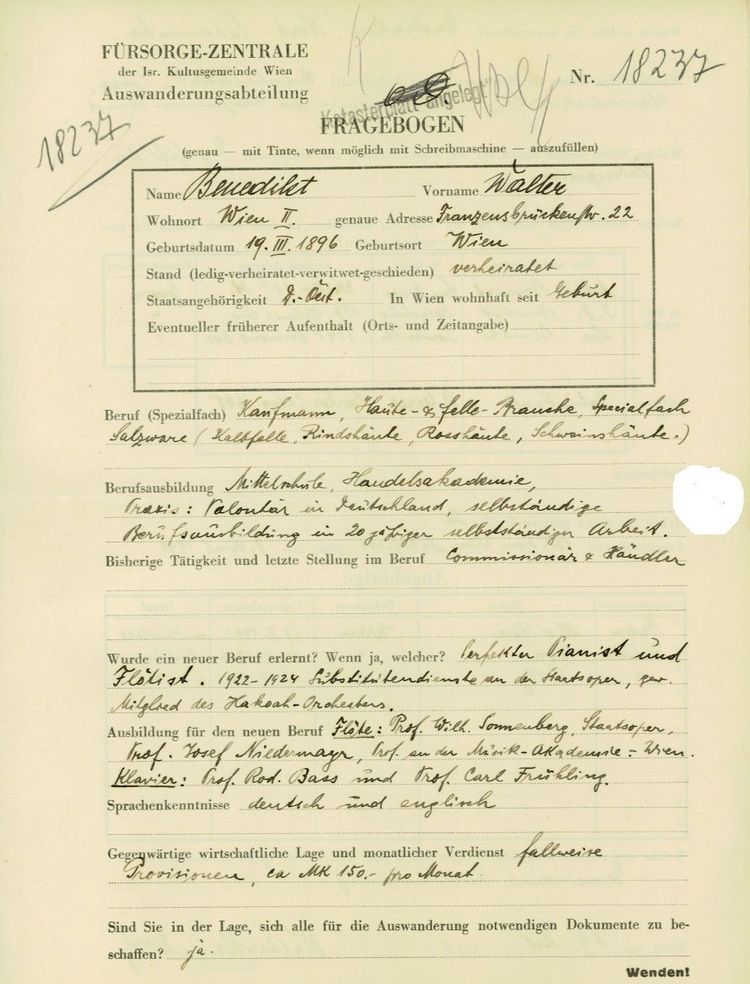 FÜRSORGE-ZENTRALE
der Isr. Kultusgemeinde Wien
Auswanderungsabteilung
Katasterblatt angelegt
Nr. 18237
18237
FRAGEBOGEN
(genau — mit Tinte, wenn möglich mit Schreibmaschine — auszufüllen)
Name Benedikt Vorname Walter
Wohnort Wien II. genaue Adresse Franzensbrückenstr. 22
Geburtsdatum 19. III. 1896 Geburtsort Wien
Stand (ledig-verheiratet-verwitwet-geschieden) verheiratet
Staatsangehörigkeit D.-Öst. In Wien wohnhaft seit Geburt
Eventueller früherer Aufenthalt (Orts- und Zeitangabe)
Beruf (Spezialfach) Kaufmann, Häute- & Felle-Branche, Specialfach
Salzware (Kalbfelle, Rindshäute, Rosshäute, Schweinshäute.)
Berufsausbildung Mittelschule, Handelsakademie,
Praxis: Volontär in Deutschland, selbständige
Berufsausbildung in 20 jähriger selbstständiger Arbeit.
Bisherige Tätigkeit und letzte Stellung im Beruf Commissionär & Händler
Wurde ein neuer Beruf erlernt? Wenn ja, welcher? Perfekter Pianist und
Flötist. 1922-1924 Substitutendienste an der Staatsoper, gew.
Mitglied des Hakoah-Orchesters.
Ausbildung für den neuen Beruf Flöte: Prof. Wilh. Sonnenberg, Staatsoper,
Prof. Josef Niedermayr, Prof. an der Musik-Akademie-Wien.
Klavier: Prof. Rod. Bass und Prof. Carl Frühling.
Sprachenkenntnisse deutsch und englisch
Gegenwärtige wirtschaftliche Lage und monatlicher Verdienst fallweise
Provisionen, ca MK 150.- pro Monat
Sind Sie in der Lage, sich alle für die Auswanderung notwendigen Dokumente zu be-
schaffen? ja.
Wenden!